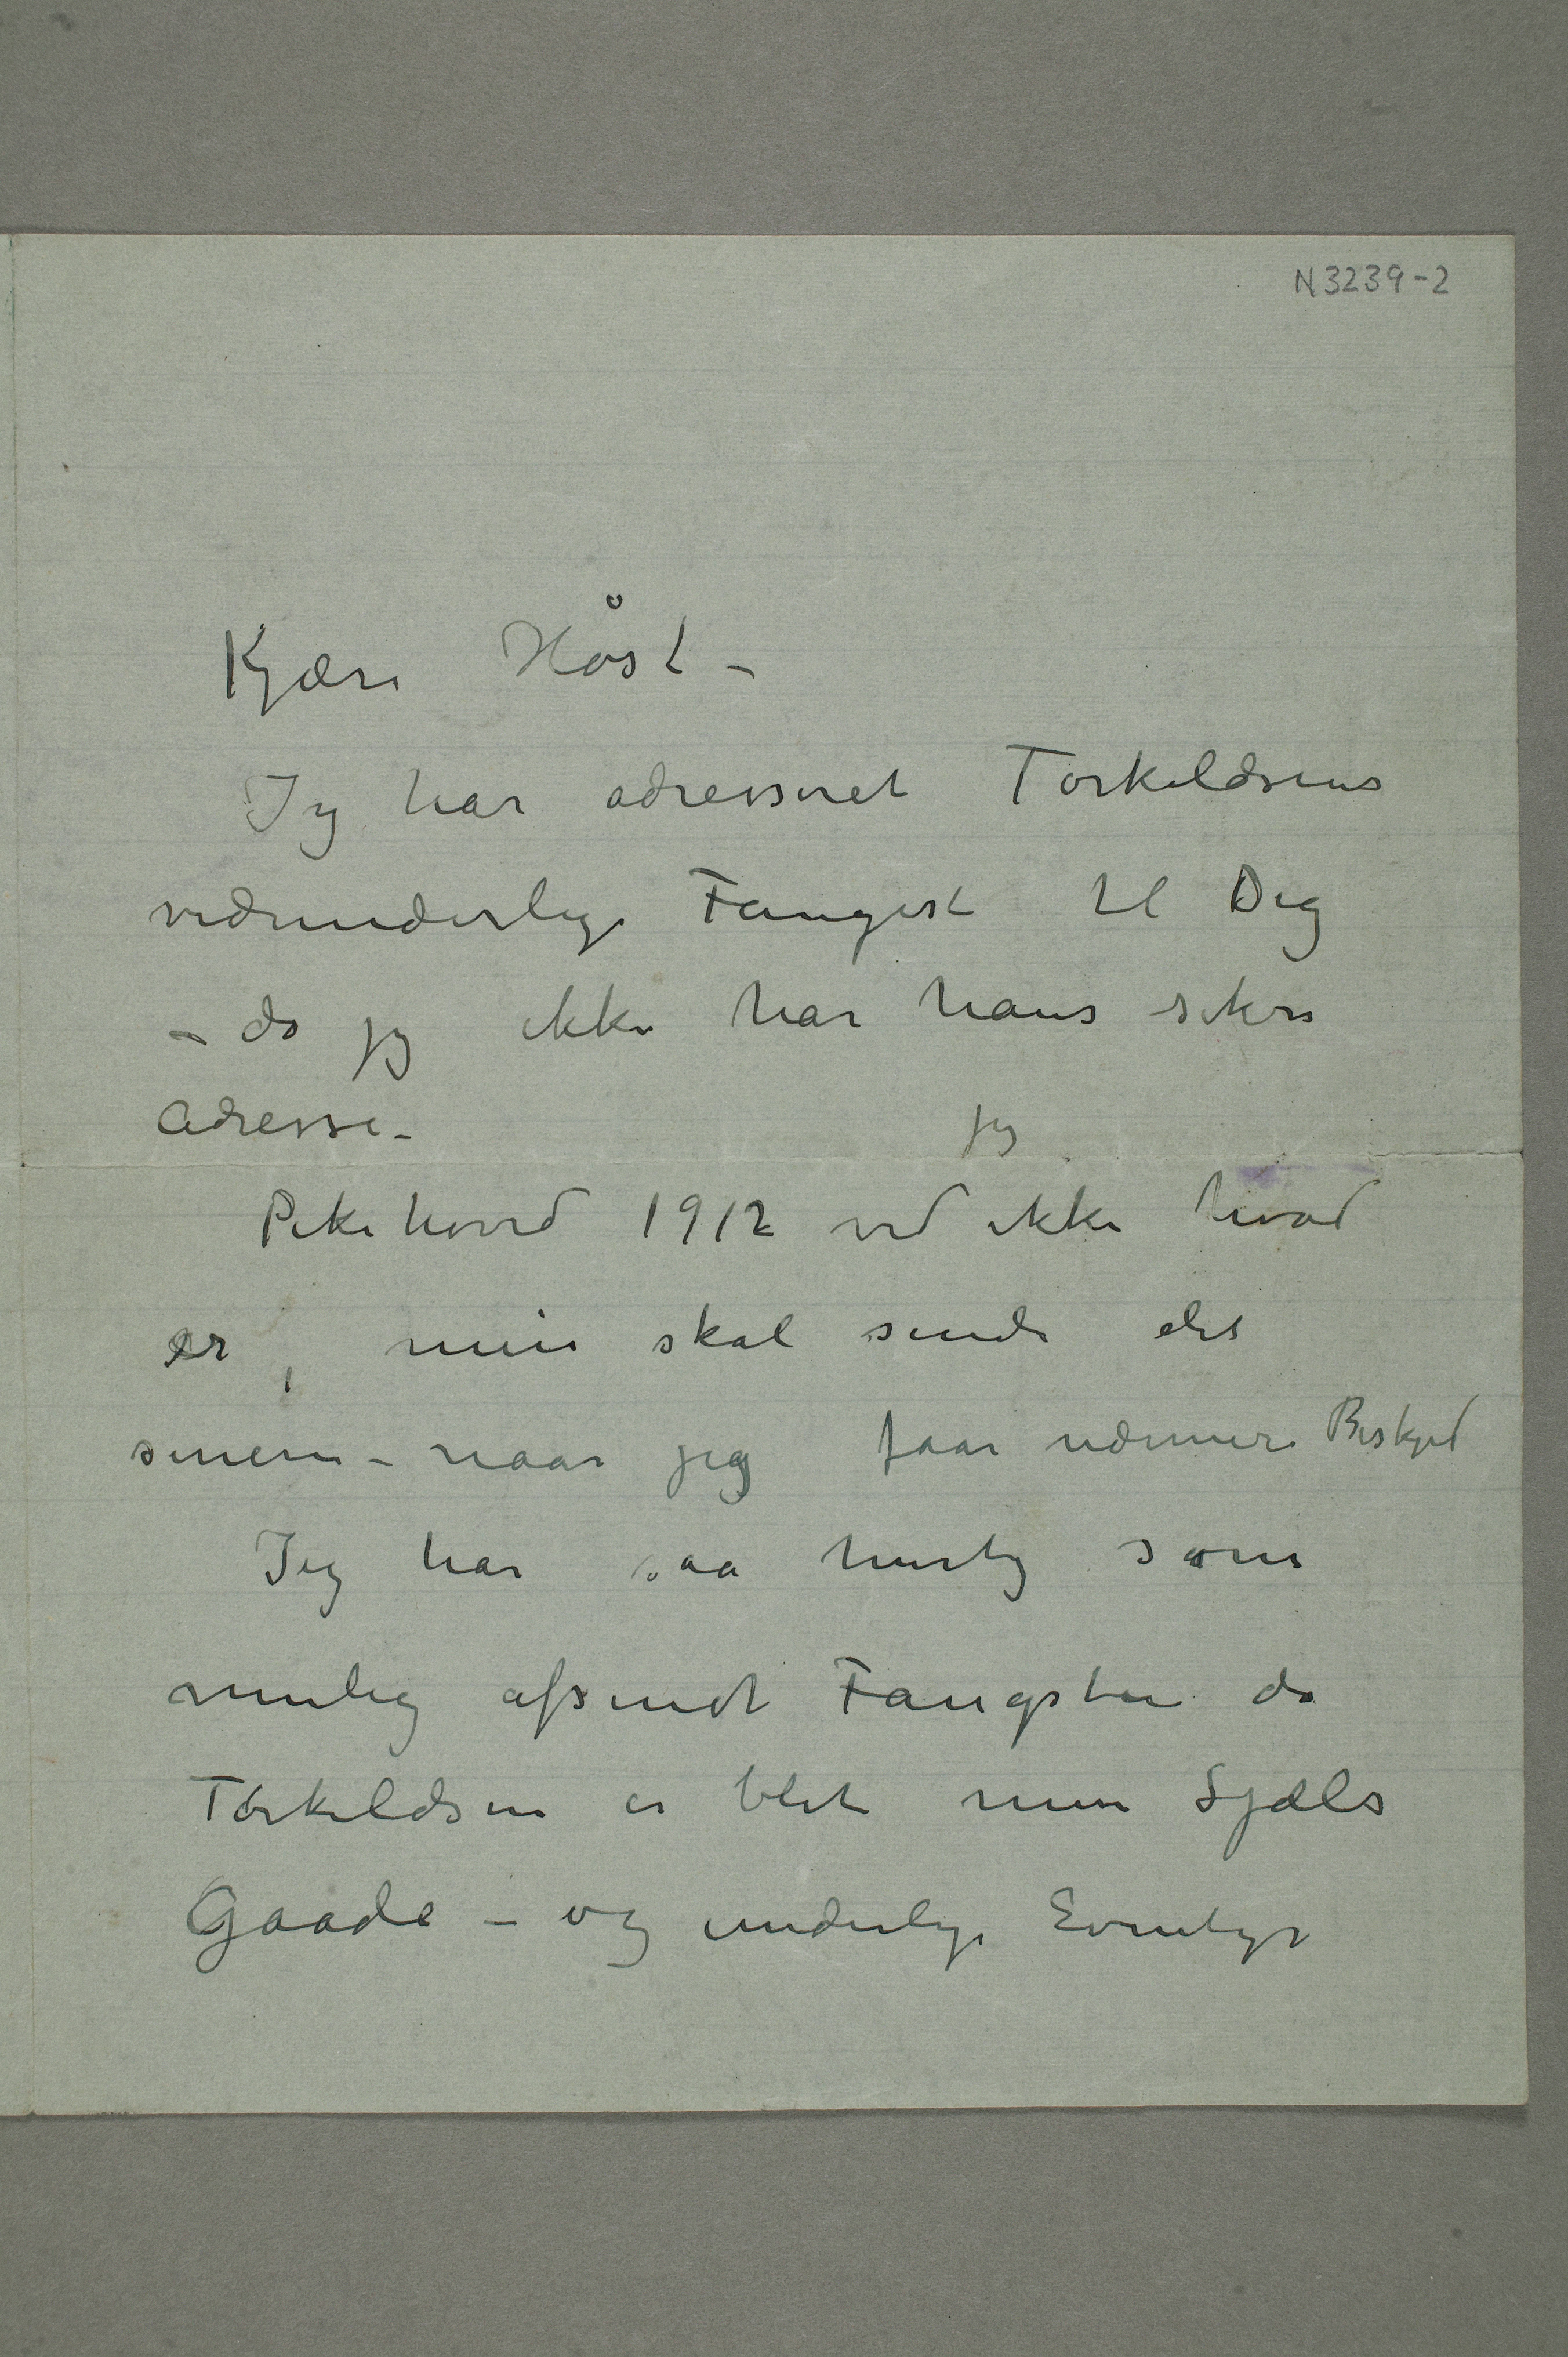 N3239-2
Kjære Høst –
Jeg har adresseret Torkildsens
vidunderlige Fangst til Dig
– da jeg ikke har hans sikre
Adresse –
Pikehoved 1912 ved jeg ikke hvad
er, men skal sende det
senere – naar jeg faar nærmere Beskjed
Jeg har saa hurtig som
mulig afsendt Fangsten da
Torkildsen er blet min Sjæls
Gaade – og underlige Eventyr